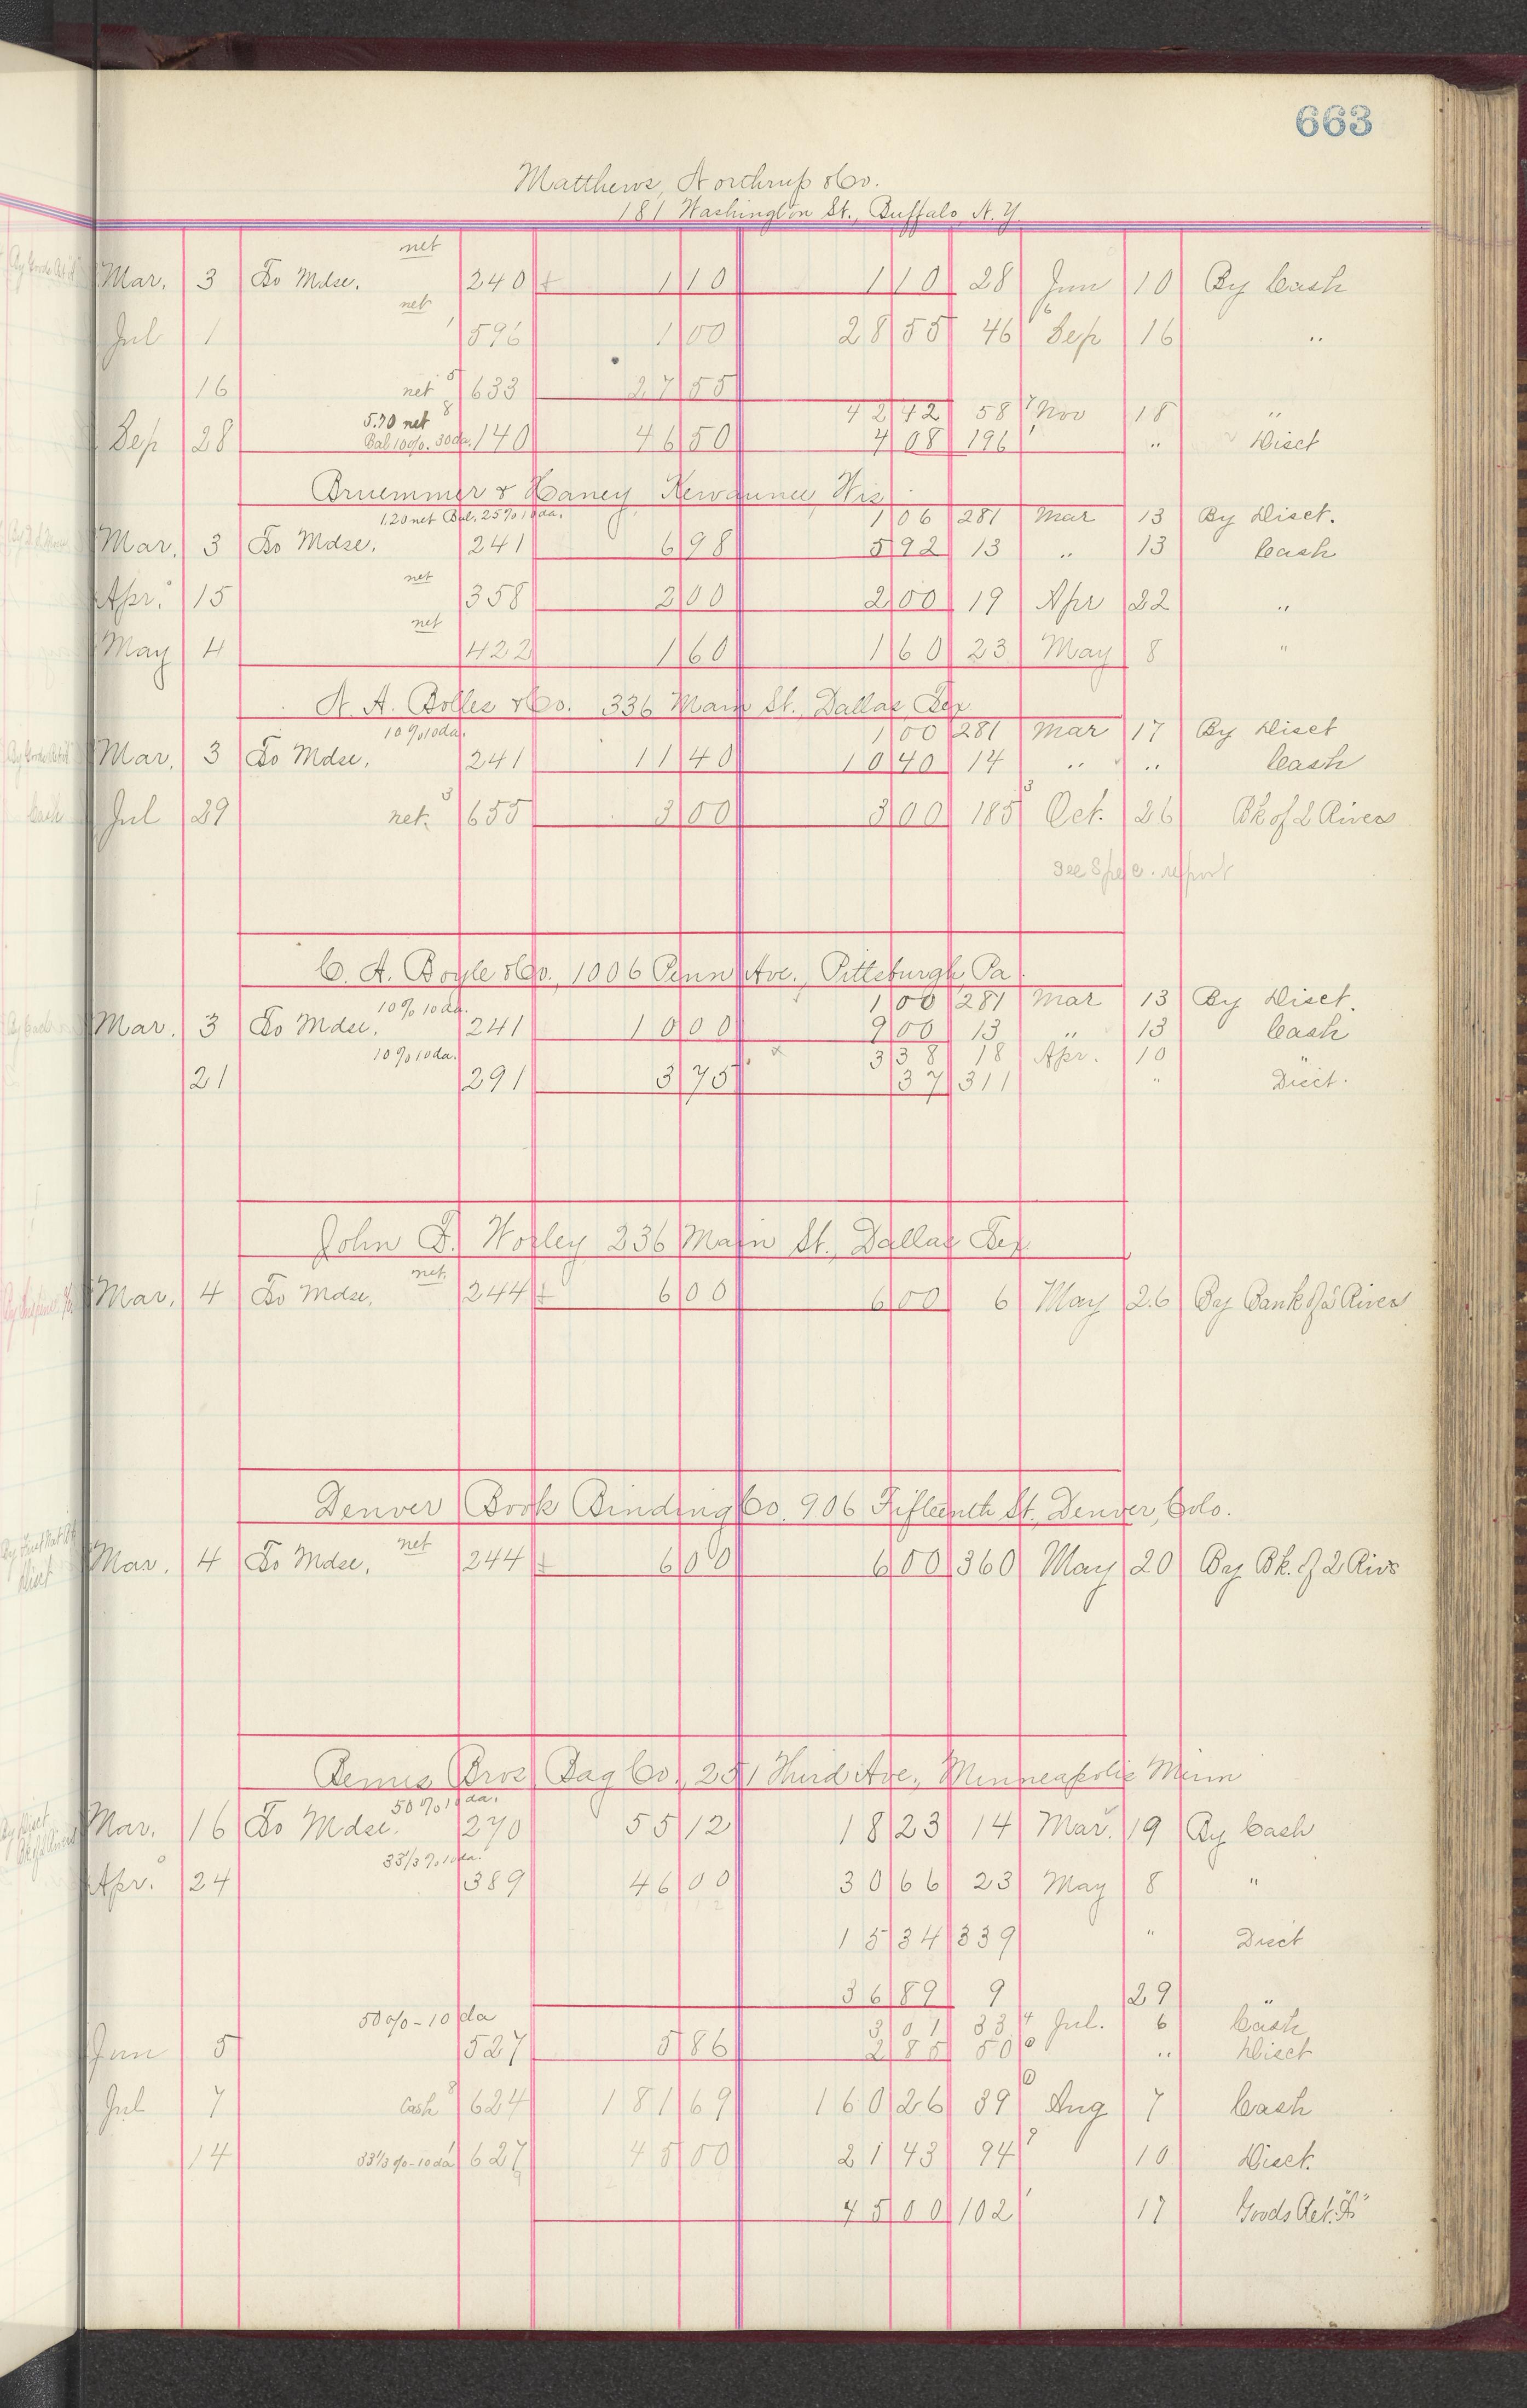 663
Matthews, Northrup & Co.
181 Washington St., Buffalo, N.Y.
net
Mar. 3 To Mdse. 240 1 10 1 10 28 Jun 10 By Cash
net
Jul 1 596 1 00 28 55 46 Sep 16 "
16 net 633 27 55
5.70 net 42 42 58 Nov 18 "
Sep 28 Bal 10%. 30 da. 140 46 50 4 08 196 " Disct
Bruemmer & Haney, Kewaunee, Wis.
1.20 net Bal. 25% 10 da. 1 06 281 Mar 13 By Disct.
Mar. 3 To Mdse. 241 6 98 5 92 13 " 13 Cash
net
Apr. 15 358 2 00 2 00 19 Apr 22 "
net
May 4 422 1 60 1 60 23 May 8 "
N. A. Bolles & Co. 336 Main St., Dallas, Tex
10% 10 da. 1 00 281 Mar 17 By Disct
Mar. 3 To Mdse. 241 11 40 10 40 14 " " Cash
Jul 29 net. 655 3 00 3 00 185 Oct. 26 Bk of 2 Rivers
see Spec. report
C. A. Boyle & Co., 1006 Penn Ave., Pittsburgh, Pa.
10% 10 da. 1 00 281 Mar 13 By Disct.
Mar. 3 To Mdse. 241 10 00 9 00 13 " 13 Cash
10% 10 da. 3 38 18 Apr. 10 "
21 291 3 75 37 311 " Disct.
John F. Worley 236 Main St., Dallas Tex.
net
Mar. 4 To Mdse. 244 6 00 6 00 6 May 26 By Bank of 2 Rivers
Denver Book Binding Co. 906 Fifteenth St., Denver, Colo.
net
Mar. 4 To Mdse. 244 6 00 6 00 360 May 20 By Bk. of 2 Rivs
Bemis Bros Bag Co., 251 Third Ave., Minneapolis Minn
50% 10 da.
Mar. 16 To Mdse. 270 55 12 18 23 14 Mar. 19 By Cash
33 1/3 % 10 da.
Apr. 24 389 46 00 30 66 23 May 8 "
15 34 339 " Disct
36 89 9 29 "
50% - 10 da 3 01 33 Jul. 6 Cash
Jun 5 527 5 86 2 85 50 " Disct
Jul 7 Cash 624 181 69 160 26 39 Aug 7 Cash
14 33 1/3 % - 10 da 627 45 00 21 43 94 10 Disct.
45 00 102 17 Goods Ret. "A"